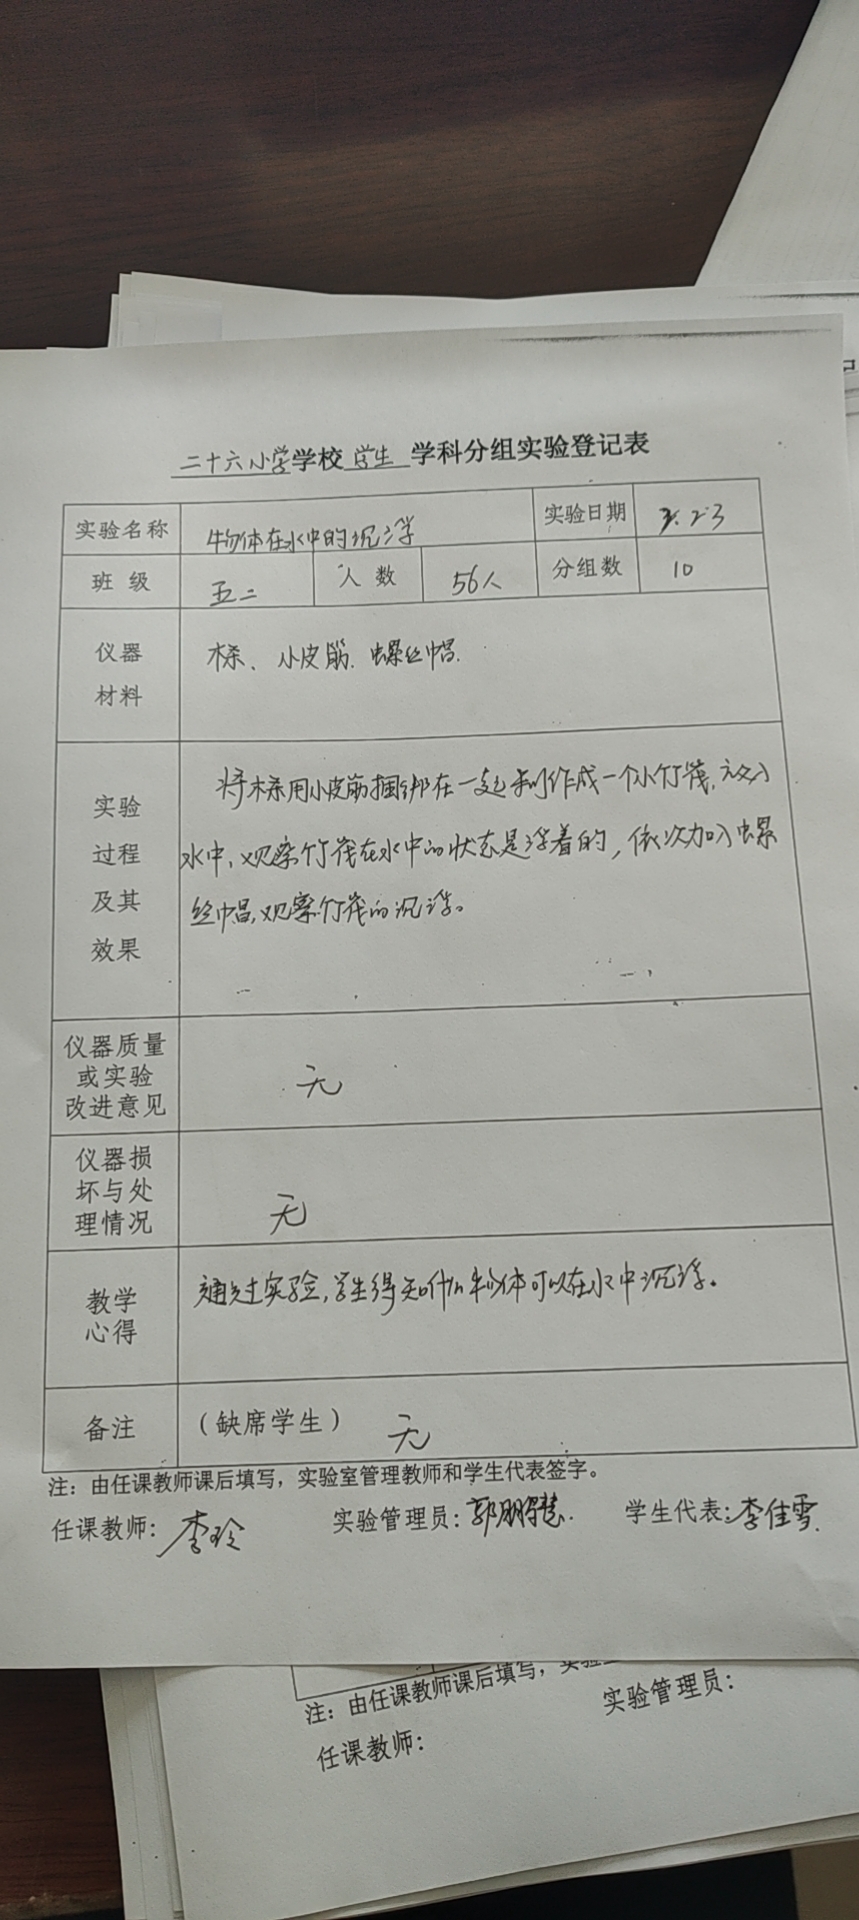 二十六小学学校 学生 学科分组实验登记表
实验名称 物体在水中的沉浮 实验日期 2.23
班 级 五二 人 数 56人 分组数 10
仪器
材料
小皮筋、螺丝帽.
实验
过程
及其
效果
用小皮筋捆绑在一起制作成一个小竹筏,放入
水中,观察竹筏在水中的状态是浮着的,依次加入螺
丝帽,观察竹筏的沉浮。
仪器质量
或实验
改进意见
无
仪器损
坏与处
理情况
无
教学
心得
通过实验,学生得知什么物体可以在水中沉浮。
备注 (缺席学生) 无
注: 由任课教师课后填写,实验室管理教师和学生代表签字。
任课教师: 李玲 实验管理员: 学生代表: 李佳雪
注: 由任课教师课后填写,实验
任课教师: 实验管理员: